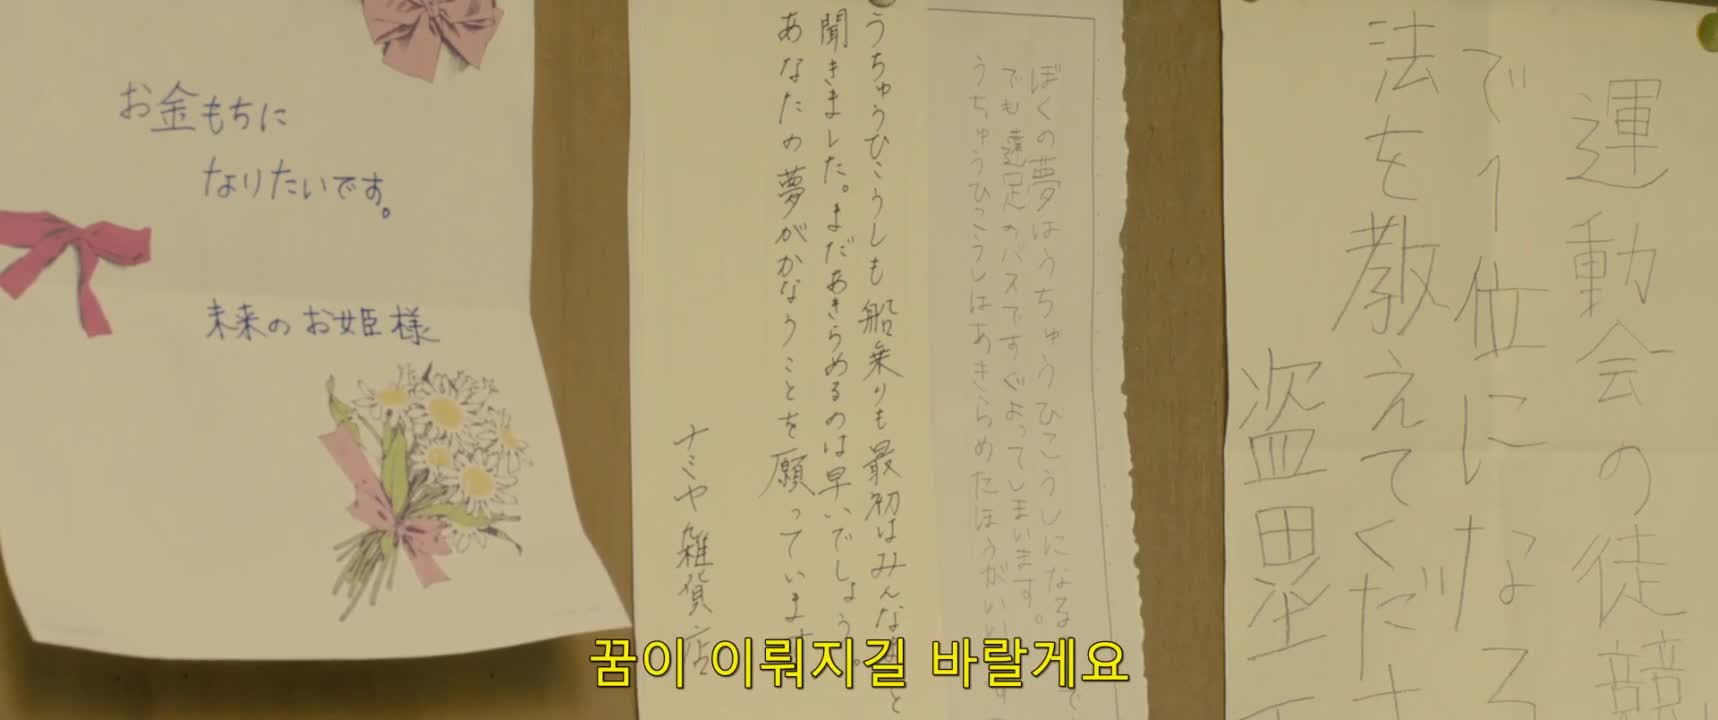 お金もちに
なりたいです。
未来のお姫様
うちゅうひこうしも船乗りも最初はみんな
聞きました。まだあきらめるのは早いでしょう。
あなたの夢がかなうことを願っています
ナミヤ雑貨店
ぼくの夢はうちゅうひこうしになる
でも遠足のバスですぐよってしまいます。
うちゅうひこうしはあきらめたほうがいい
運動会の徒競
で1位になる
法を教えてくださ
盗塁
꿈이 이뤄지길 바랄게요